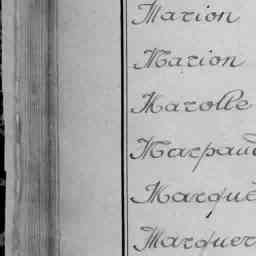 Marion
Marion
Marolle
Marpaud
Marqué
Marquer